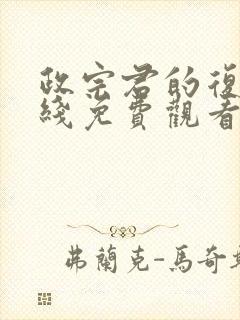 政宗君的復
綫免費觀看
弗蘭克-馬奇